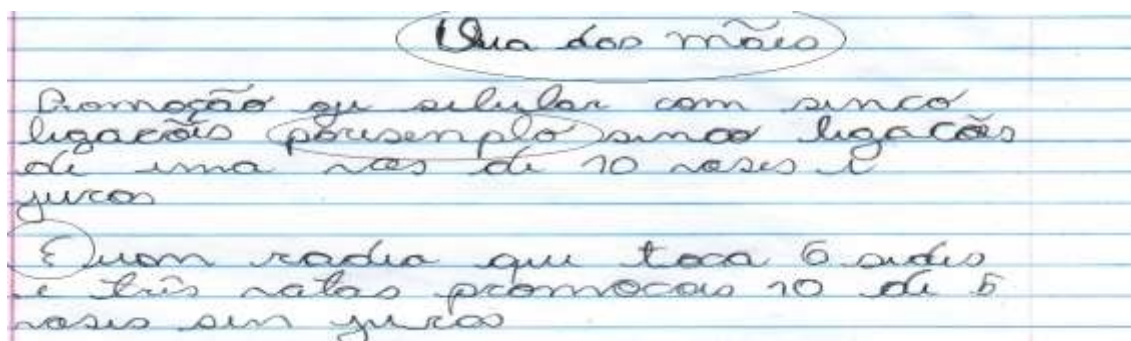 Dua das mães
Promoção qu selular com sinco
ligacões poresemplo sinco ligacões
de uma ves de 10 veses e
juros
E uom radio que toca 6 sidis
e três natas promocais 10 de 5
veses sen juros